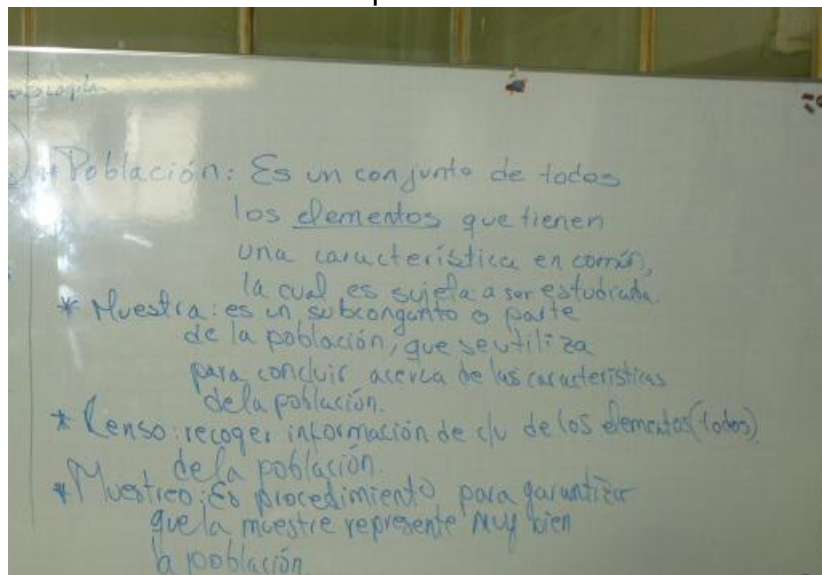 * Población: Es un conjunto de todos
los elementos que tienen
una característica en común,
la cual es sujeta a ser estudiada.
* Muestra: es un subconganto o parte
de la población, que se utiliza
para concluir acerca de las características
de la población.
* Censo: recoger información de c/u de los elementos (todos)
de la población.
* Muestreo: Es procedimiento para garantizar
que la muestre represente muy bien
la población.